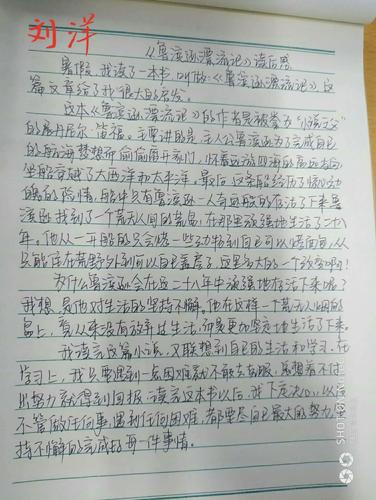 刘洋
《鲁滨逊漂流记》读后感
暑假,我读了一本书,叫做《鲁滨逊漂流记》这
篇文章给了我很大的启发。
这本《鲁滨逊漂流记》的作者是被拳为"小说之父"
的展丹尼尔·笛福。主要讲的是,主人公鲁滨逊为了完成自己
的航海梦想而偷偷离开家门,怀着远游四海的高远志向,
坐船穿越了大西洋和太平洋。最后,这条船经历了惊心动
魄的险情,船中只有鲁滨逊一人奇迹般的存活了下来,鲁
滨逊找到了一个荒无人间的荒岛,在那里顽强地生活了二十八
年。他从一开始的只会搭一些到自己可以烤面包,从
只能住在荒野外到可以自己盖房子,这是多大的一个改变啊!
为什么鲁滨逊会在这二十八年中顽强地存活下来呢?
我想,是他对生活的坚持不懈。他在这样一个荒无人烟的
岛上,着从来没有放弃过生活,而是更加坚定地生活了下来。
我读完这篇小说,又联想到自己的生活和学习。在
学习上,我只要遇到一点困难就不敢去克服,总想着不付
出努力就得到回报。读完这本书以后,我下定决心,以后
不管做任何事,遇到任何困难,都要尽自己最大的努力,坚
持不懈的完成好每一件事情。
SHOT ON